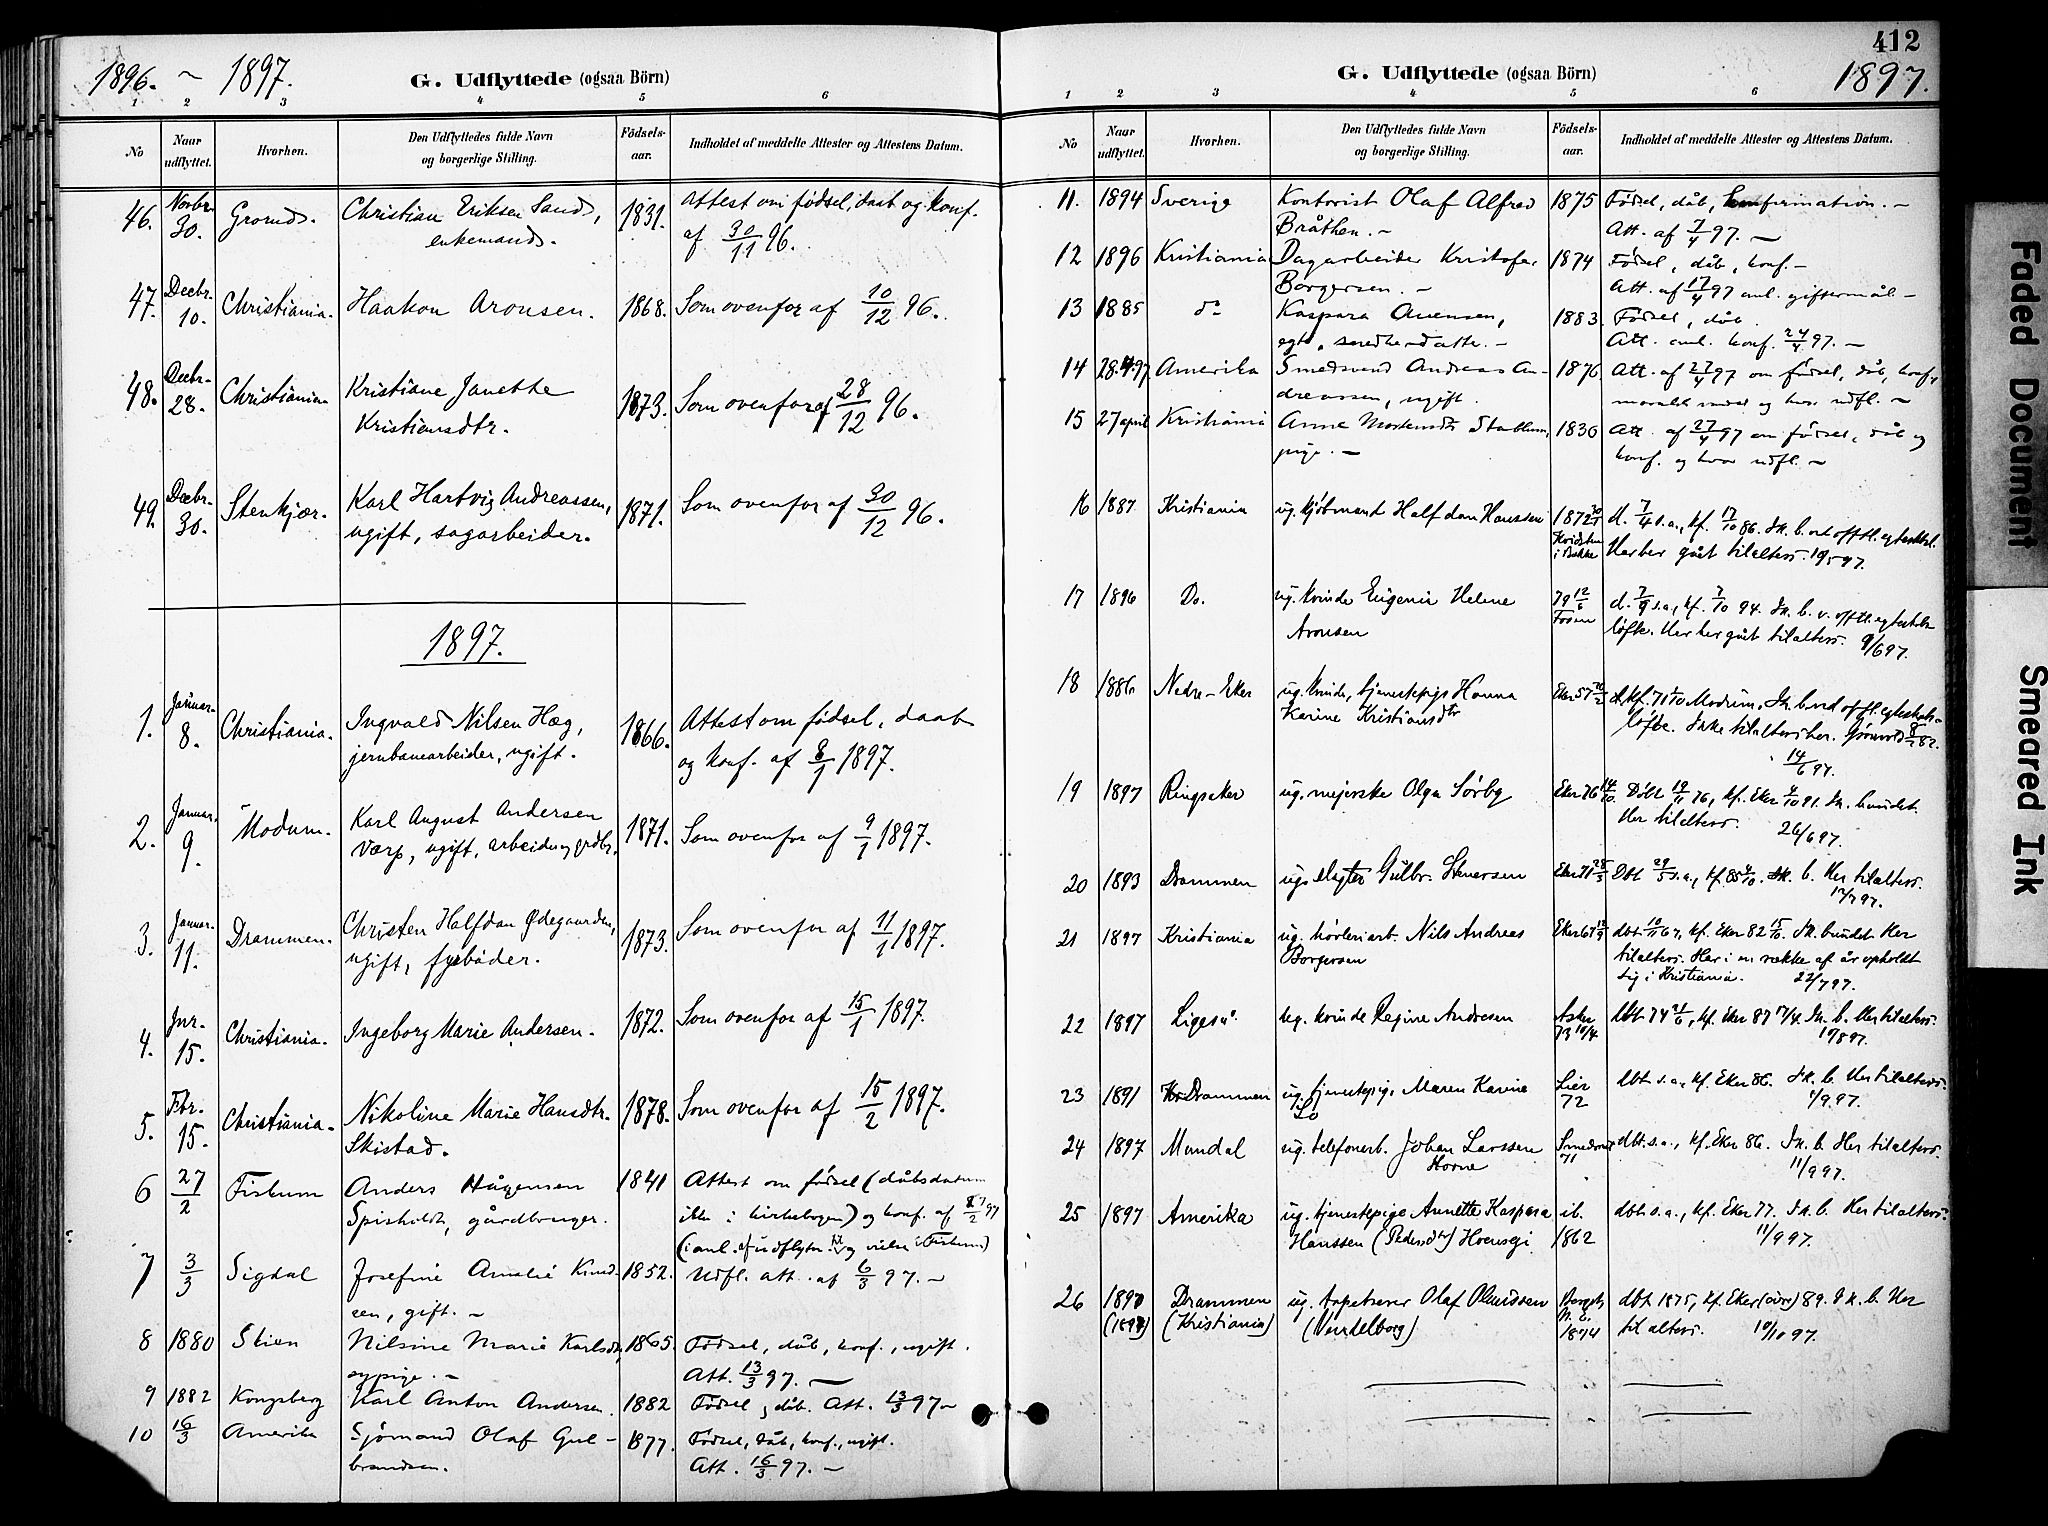 1896. ~ 1897.
G. Udflyttede (ogsaa Börn)
1 2 3 4 5 6
No
Naar udflyttet.
Hvorhen.
Den Udflyttedes fulde Navn og borgerlige Stilling.
Födsels-aar.
Indholdet af meddelte Attester og Attestens Datum.
46. Novbr. 30. Gromd. Christian Eriksen Sand, 1831. Attest om fødsel, daab og konf.
enkemand. af 30/11 96.
47. Decbr. 10. Christiania. Haakon Aronsen. 1868. Som ovenfor af 10/12 96.
48. Decbr. 28. Christiania Kristiane Janethe 1873. Som ovenfor af 28/12 96.
Kristiansdtr.
49. Decbr. 30. Stenkjær. Karl Hartvig Andreassen, 1871. Som ovenfor af 30/12 96.
ugift, sagarbeider.
1897.
1. Januar 8. Christiania. Ingvald Nilsen Hæg, 1866. Attest om fødsel, daab
jernbanearbeider, ugift. og konf. af 8/1 1897.
2. Januar 9. Modum. Karl August Andersen 1871. Som ovenfor af 9/1 1897.
Værp, ugift, arbeider og grdbr.
3. Januar 11. Drammen. Christen Halfdan Ødegaarden, 1873. Som ovenfor af 11/1 1897.
ugift, fyrbøder.
4. Jnr. 15. Christiania. Ingeborg Marie Andersen. 1872. Som ovenfor af 15/1 1897.
5. Fbr. 15. Christiania. Nikoline Marie Hansdtr. 1878. Som ovenfor af 15/2 1897.
Skistad.
6 27/2 Fiskum Anders Hågensen 1841 Attest om fødsel (dåbsdatum
Spisholdt, gårdbruger. ikke i kirkebogen) og konf. af 27/2 97
(i anl. af udflytn. og vielse i Fiskum)
7 3/3 Sigdal Josefine Amalie Knud- 1852. Udfl. att. af 6/3 97. –
sen, gift. –
8 1880 Skien Nilsine Marie Karlsdt, 1865. Fødsel, dåb, konf., ugift.
sypige. – Att. 13/3 97. –
9 1882 Kongsberg Karl Anton Andersen. 1882 Fødsel, dåb. Att. 13/3 97 –
10 16/3 Amerika Sjømand Olaf Gul- 1877. Fødsel, dåb, konf., ugift.
brandsen. Att. 16/3 97. –
412
G. Udflyttede (ogsaa Börn)
1897.
1 2 3 4 5 6
No
Naar udflyttet.
Hvorhen.
Den Udflyttedes fulde Navn og borgerlige Stilling.
Födsels-aar.
Indholdet af meddelte Attester og Attestens Datum.
11. 1894 Sverige Kontorist Olaf Alfred 1875 Fødsel, dåb, konfirmation. –
Bråthen. – Att. af 7/4 97. –
12 1896 Kristiania Dagarbeider Kristofer 1874 Fødsel, dåb, konf. –
Borgersen. – Att. af 17/4 97 anl. giftermål –
13 1885 do Kaspara Evensen, 1883. Fødsel, dåb.
egt. smedsdatter. – Att. anl. konf. 24/4 97. –
14 28/4 97 Amerika Smedsvend Andreas An- 1876. Att. af 27/4 97 om fødsel, dåb, konf,
dreassen, ugift. moralsk vandel og hvor udfl. –
15 27 april Kristiania Anne Mortensdtr Stablum, 1836 Att. af 27/4 97 om fødsel, dåb og
pige. – konf. og hvor udfl. –
16 1887 Kristiania ug. kjøbmand Halfdan Hanssen 1872 d. 7/4 s.a., kf. 17/10 86. Ik. b. ved offtl. egteskbl.
i Bakke Her ber gået til alters. 19/5 97.
17 1896 Do. ug. kvinde Eugenie Helene 79 12/6 d. 7/9 s.a., kf. 7/10 94. Ik. b. v. offtl. egteskbs
Aronsen Fossen løfte. Her her gået til alters. 9/6 97.
18 1886 Nedre-Eker ug. kvinde, tjenestepige Hanna Eker 57 d. kf. 71 Modum, Ik. b. ved offtl. egteskabs-
Karine Kristiansdtr løfte. Ikke til alters her. 82.
14/6 97.
19 1897 Ringsaker ug. mejerske Olga Sørby Eker 76 14/10 Døbt 19/11 76, kf. Eker 4/10 91. Ik. bundet.
Her til alters. 26/6 97.
20 1893 Drammen ug. slagter Gulbr. Steversen Eker 71 Dbt 29/5 s.a., kf. 85 Ik. b. Her til alters.
12/7 97.
21 1897 Kristiania ug. høvleriarb. Nils Andreas Eker 67 dbt. 10/11 67, kf. Eker 82 15/10. Ik. bundet Her
Borgersen til alters. Har i en række af år opholdt
sig i Kristiania. 22/7 97.
22 1897 Ligeså. ug. kvinde Regine Andresen Asker dbt. 74 21/6, kf. Eker 87 17/4. Ik. b. Her til alters.
73 10/4 19/8 97.
23 1891 Drammen ug. tjenestepige Maren Karine Lier dbt. s.a., kf. Eker 86. Ik. b. Her til alters.
Lo 72 1/9 97.
24 1897 Mandal ug. telefonarb. Johan Larssen 71 dbt. s.a., kf. Eker 86. Ik. b. Her til alters.
Horne 11/9 97.
25 1897 Amerika ug. tjenestepige Annette Kaspara ib. dbt. s.a., kf. Eker 77. Ik. b. Her til alters.
Hanssen (Pedersdtr) Hoensei 1862 11/9 97.
26 1890 Drammen ug. tapetserer Olaf Olavssen dbt. 1875, kf. Eker (øvre) 89. Ik. b. Her
(Kristiania) (Vendelborg) N. E. 1874 til alters. 19/10 97.
Faded Document
Smeared Ink